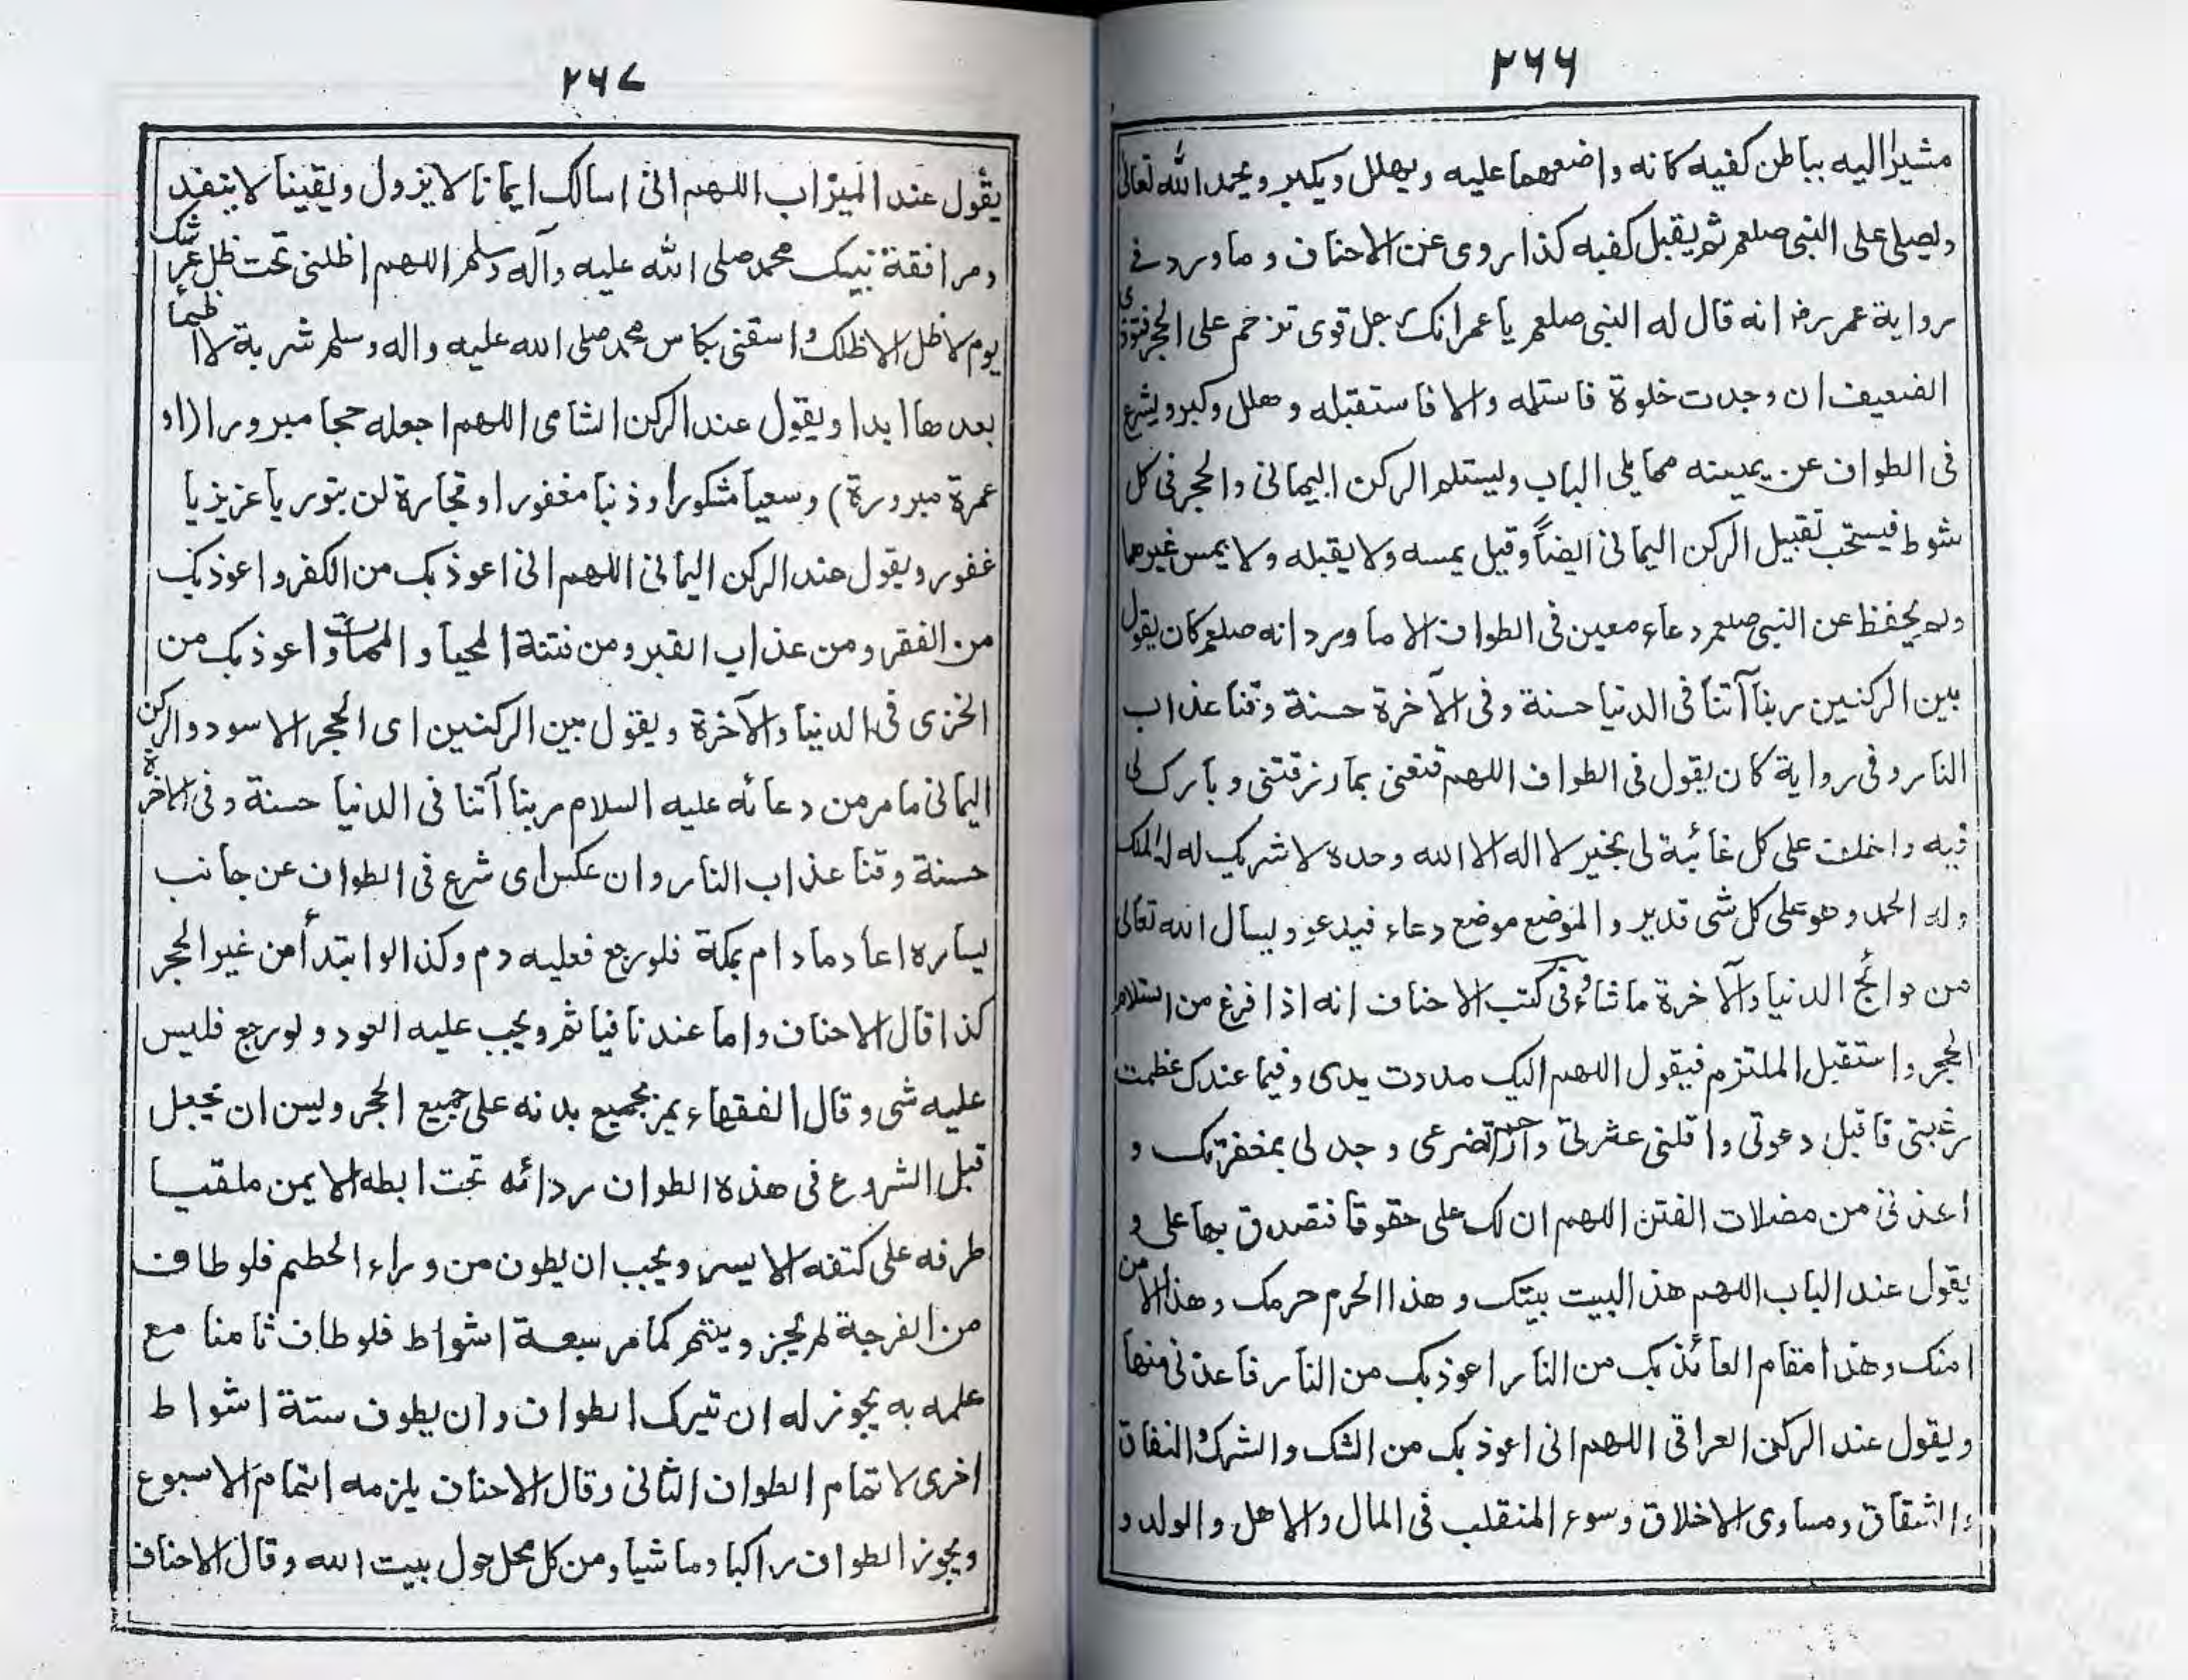 ٢٦٦
مشيرا اليه بباطن كفيه كانه واضعهما عليه ويهلل ويكبر ويحمد الله تعالى
ويصلى على النبى صلعم ثم يقبل كفيه كذا روى عن الاحناف وما ورد فى
رواية عمر رض انه قال له النبى صلعم يا عمر انك رجل قوى تزخم على الحجر فتوذى
الضعيف ان وجدت خلوة فاستلمه والا فاستقبله وهلل وكبر ويشرع
فى الطواف عن يمينه مما يلى الباب ويستلم الركن اليمانى والحجر فى كل
شوط فيستحب تقبيل الركن اليمانى ايضاً وقيل يمسه ولا يقبله ولا يمس غيرهما
ولم يحفظ عن النبى صلعم دعاء معين فى الطواف الا ما ورد انه صلعم كان يقول
بين الركنين ربنا آتنا فى الدنيا حسنة وفى الآخرة حسنة وقنا عذاب
النار وفى رواية كان يقول فى الطواف اللهم قنعنى بما رزقتنى وبارك لى
فيه واخلف على كل غائبة لى بخير لا اله الا الله وحده لا شريك له له الملك
وله الحمد وهو على كل شى قدير والموضع موضع دعاء فيدعو ويسأل الله تعالى
من حوائج الدنيا والآخرة ما شاء وفى كتب الاحناف انه اذا فرغ من استلام
الحجر واستقبل الملتزم فيقول اللهم اليك مددت يدى وفيما عندك عظمت
رغبتى فاقبل دعوتى واقلنى عثرتى وارحم تضرعى وجد لى بمغفرتك و
اعذنى من مضلات الفتن اللهم ان لك على حقوقا فتصدق بها على و
يقول عند الباب اللهم هذا البيت بيتك وهذا الحرم حرمك وهذا الامن
امنك وهذا مقام العائذ بك من النار اعوذ بك من النار فاعذنى منها
ويقول عند الركن العراقى اللهم انى اعوذ بك من الشك والشرك والنفاق
والشقاق ومساوى الاخلاق وسوء المنقلب فى المال والاهل والولد و
٢٦٧
يقول عند الميزاب اللهم انى اسالك ايمانا لا يزول ويقينا لا ينفد
ومرافقة نبيك محمد صلى الله عليه وآله وسلم اللهم اظلنى تحت ظل عرشك
يوم لا ظل الا ظلك واسقنى بكاس محمد صلى الله عليه واله وسلم شربة لا اظمأ
بعدها ابدا ويقول عند الركن الشامى اللهم اجعله حجا مبرورا (او
عمرة مبرورة) وسعيا مشكورا وذنبا مغفورا وتجارة لن تبور يا عزيز يا
غفور ويقول عند الركن اليمانى اللهم انى اعوذ بك من الكفر واعوذ بك
من الفقر ومن عذاب القبر ومن فتنة المحيا والممات واعوذ بك من
الخزى فى الدنيا والآخرة ويقول بين الركنين اى الحجر الاسود والركن
اليمانى ما مر من دعائه عليه السلام ربنا آتنا فى الدنيا حسنة وفى الاخرة
حسنة وقنا عذاب النار وان عكس اى شرع فى الطواف عن جانب
يساره اعاد مادام بمكة فلو رجع فعليه دم وكذا لو ابتدأ من غير الحجر
كذا قال الاحناف واما عندنا فياثم ويجب عليه العود ولو رجع فليس
عليه شى وقال الفقهاء يمر بجميع بدنه على جميع الحجر وليس ان يجعل
قبل الشروع فى هذه الطواف ردائه تحت ابطه الايمن ملقيا
طرفه على كتفه الايسر ويجب ان يطوف من وراء الحطيم فلو طاف
من الفرجة لم يجز ويتم كما مر سبعة اشواط فلو طاف ثامنا مع
علمه به يجوز له ان تيرك الطواف وان يطوف ستة اشواط
اخرى لاتمام الطواف الثانى وقال الاحناف يلزمه اتمام الاسبوع
ويجوز الطواف راكبا وماشيا ومن كل محل حول بيت الله وقال الاحناف